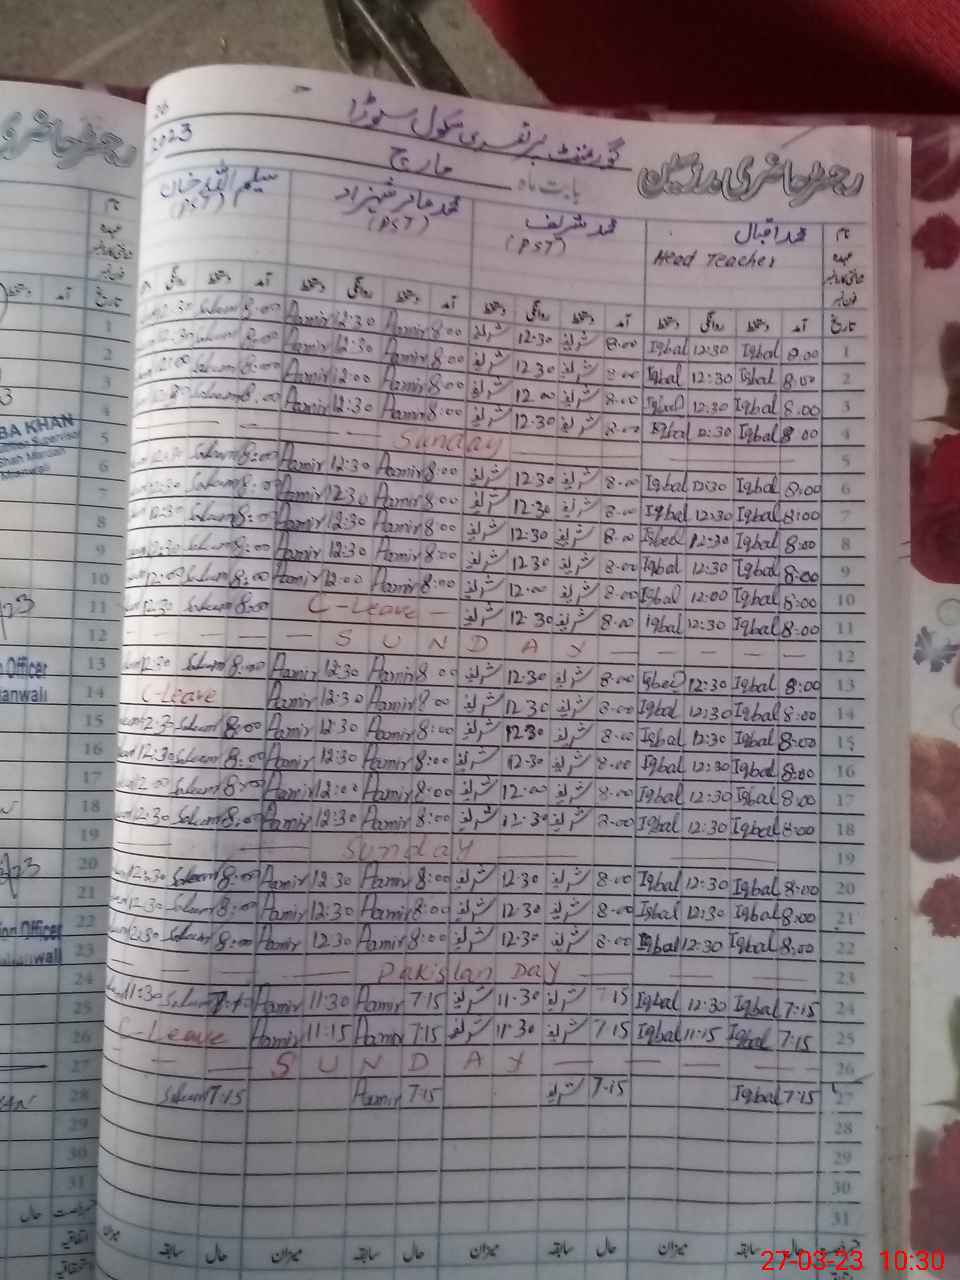 26
گورنمنٹ پرائمری سکول
رجسٹر حاضری مدرسین
2023
بابت ماہ مارچ
نام محمد اقبال محمد شریف محمد عامر شہزاد سلیم اللہ خان
عہدہ Head Teacher (PST) (PST) (PST)
تاریخ آمد دستخط روانگی دستخط آمد دستخط روانگی دستخط آمد دستخط روانگی دستخط آمد دستخط
1 8.00 Iqbal 12:30 Iqbal 8.00 شریف 12.30 شریف 8:00 Aamir 12:30 Aamir 8:00 Saleem
2 8:00 Iqbal 12:30 Iqbal 8.00 شریف 12.30 شریف 8:00 Aamir 12:30 Aamir 8:00 Saleem
3 8:00 Iqbal 12:30 Iqbal 8.00 شریف 12.00 شریف 8:00 Aamir 12:00 Aamir 8:00 Saleem
4 8:00 Iqbal 12:30 Iqbal 8.00 شریف 12.30 شریف 8:00 Aamir 12:30 Aamir 8:00 Saleem
5 Sunday
6 8:00 Iqbal 12:30 Iqbal 8.00 شریف 12.30 شریف 8:00 Aamir 12:30 Aamir 8:00 Saleem
7 8:00 Iqbal 12:30 Iqbal 8.00 شریف 12.30 شریف 8:00 Aamir 12:30 Aamir 8:00 Saleem
8 8:00 Iqbal 12:30 Iqbal 8.00 شریف 12.30 شریف 8:00 Aamir 12:30 Aamir 8:00 Saleem
9 8:00 Iqbal 12:30 Iqbal 8.00 شریف 12.30 شریف 8:00 Aamir 12:30 Aamir 8:00 Saleem
10 8:00 Iqbal 12:00 Iqbal 8.00 شریف 12.00 شریف 8:00 Aamir 12:00 Aamir 8:00 Saleem 12:00
11 8:00 Iqbal 12:30 Iqbal 8.00 شریف 12.30 شریف C-Leave 8:00 Saleem 12:30
12 SUNDAY
13 8:00 Iqbal 12:30 Iqbal 8.00 شریف 12.30 شریف 8:00 Aamir 12:30 Aamir 8:00 Saleem 12:30
14 8:00 Iqbal 12:30 Iqbal 8.00 شریف 12.30 شریف 8:00 Aamir 12:30 Aamir C-Leave
15 8:00 Iqbal 12:30 Iqbal 8.00 شریف 12.30 شریف 8:00 Aamir 12:30 Aamir 8:00 Saleem
16 8:00 Iqbal 12:30 Iqbal 8.00 شریف 12.30 شریف 8:00 Aamir 12:30 Aamir 8:00 Saleem 12:30
17 8:00 Iqbal 12:30 Iqbal 8.00 شریف 12.00 شریف 8:00 Aamir 12:00 Aamir 8:00 Saleem 12:00
18 8:00 Iqbal 12:30 Iqbal 8.00 شریف 12.30 شریف 8:00 Aamir 12:30 Aamir 8:00 Saleem 12:30
19 Sunday
20 8:00 Iqbal 12:30 Iqbal 8.00 شریف 12.30 شریف 8:00 Aamir 12:30 Aamir 8:00 Saleem 12:30
21 8:00 Iqbal 12:30 Iqbal 8.00 شریف 12.30 شریف 8:00 Aamir 12:30 Aamir 8:00 Saleem 12:30
22 8:00 Iqbal 12:30 Iqbal 8.00 شریف 12.30 شریف 8:00 Aamir 12:30 Aamir 8:00 Saleem
23 Pakistan Day
24 7:15 Iqbal 12:30 Iqbal 7:15 شریف 11.30 شریف 7:15 Aamir 11:30 Aamir Saleem 11:30
25 7:15 Iqbal 11:15 Iqbal 7:15 شریف 11.30 شریف 7:15 Aamir 11:15 Aamir C-Leave
26 SUNDAY
27 7:15 Iqbal 7:15 شریف 7:15 Aamir 7:15 Saleem
28
29
30
31
حال سابقہ میزان حال سابقہ میزان حال سابقہ میزان حال سابقہ میزان
رجسٹر حاضری
تاریخ
1
2
3
4
5
6
7
8
9
10
11
12
13
14
15
16
17
18
19
20
21
22
23
24
25
26
27
28
29
30
31
BA KHAN
Officer
anwali
Officer
27-03-23 10:30